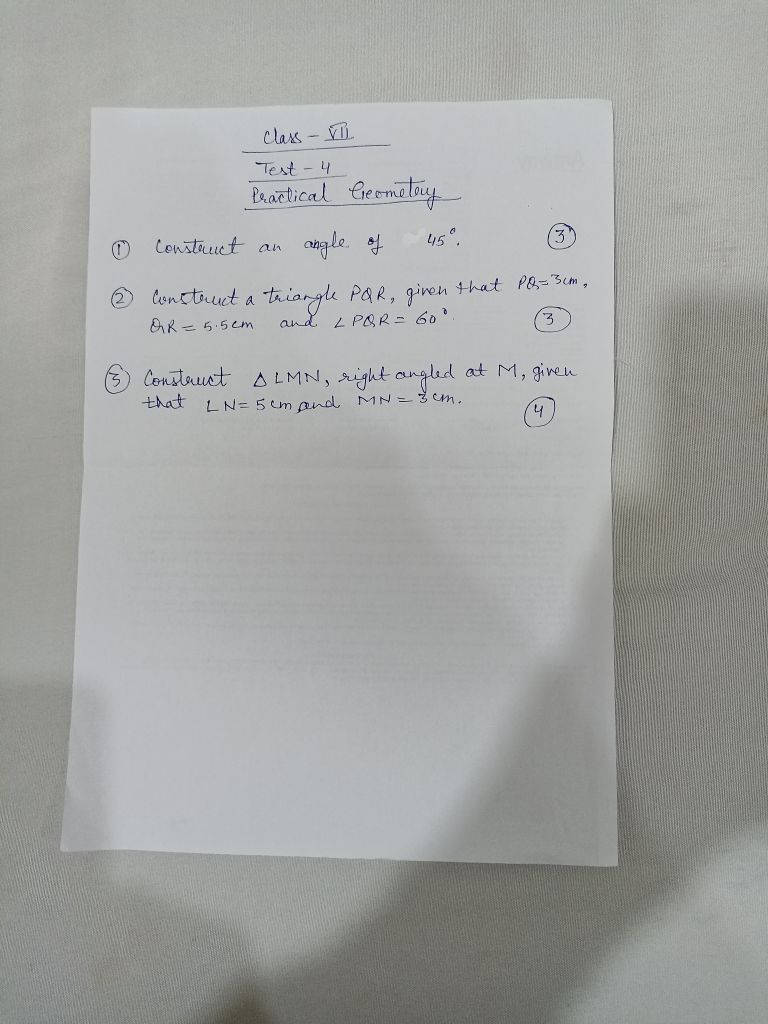 Class - VII
Test - 4
Practical Geometry
① Construct an angle of 45°. ③
② Construct a triangle PQR, given that PQ = 3cm,
QR = 5.5cm and ∠PQR = 60°. ③
③ Construct △LMN, right angled at M, given
that LN = 5cm and MN = 3cm. ④